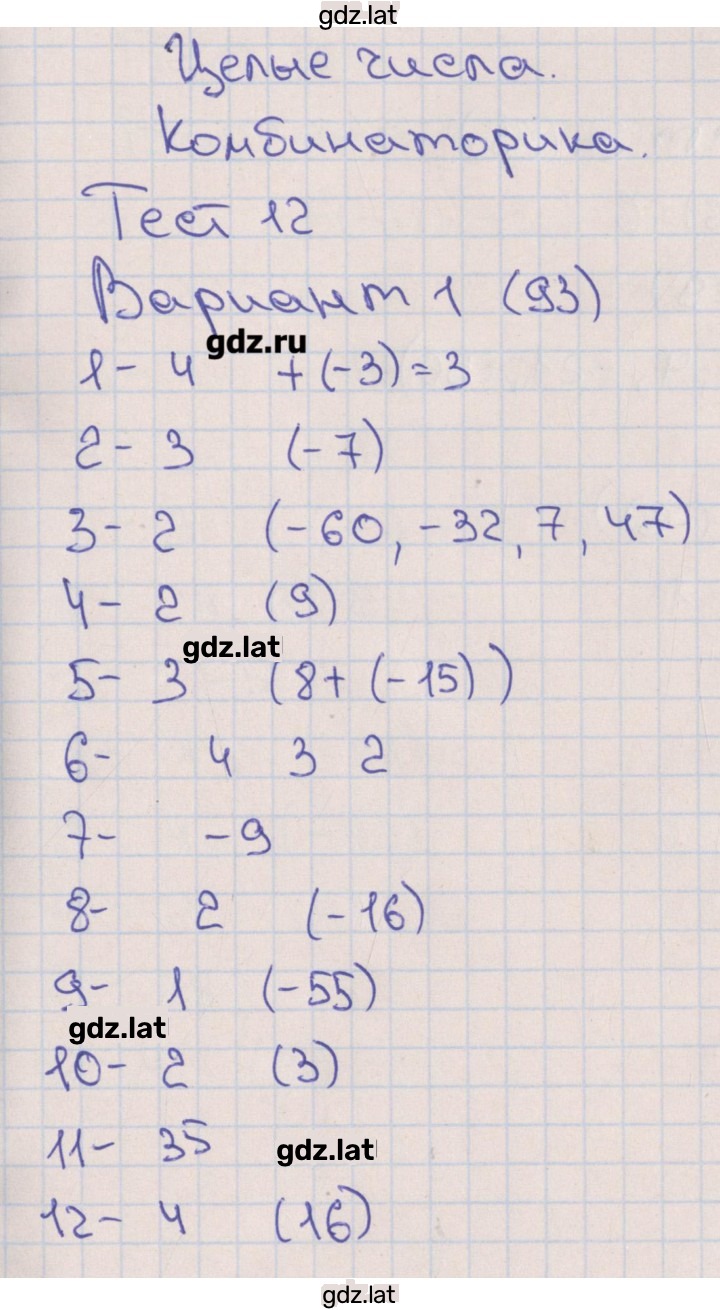 gdz.lat
Целые числа.
Комбинаторика.
Тест 12
Вариант 1 (93)
gdz.ru
1- 4 + (-3) = 3
2- 3 (-7)
3- 2 (-60, -32, 7, 47)
4- 2 (9)
gdz.lat
5- 3 (8+ (-15))
6- 4 3 2
7- -9
8- 2 (-16)
9- 1 (-55)
gdz.lat
10- 2 (3)
11- 35
gdz.lat
12- 4 (16)
gdz.lat